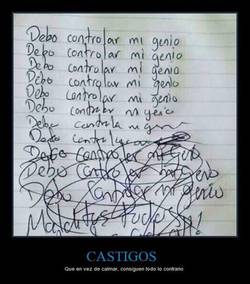 Debo controlar mi genio
Debo controlar mi genio
Debo controlar mi genio
Debo controlar mi genio
Debo controlar mi genio
Debo controlar mi genio
Debo
Debo
Debo controlar mi genio
Debo controlar mi genio
Debo controlar mi genio
CASTIGOS
Que en vez de calmar, consiguen todo lo contrario